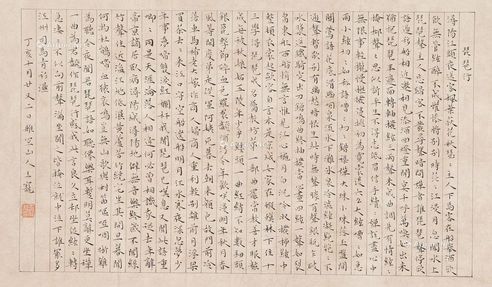 琵琶行
潯陽江頭夜送客楓葉荻花秋瑟瑟主人下馬客在船舉酒欲
飲無管絃醉不成歡慘將別別時茫茫江浸月忽聞水上
琵琶聲主人忘歸客不發尋聲暗問彈者誰琵琶聲停欲
語遲移船相近邀相見添酒回燈重開宴千呼萬喚始出來
猶抱琵琶半遮面轉軸撥絃三兩聲未成曲調先有情絃絃
掩抑聲聲思似訴平生不得意低眉信手續續彈說盡心中
無限事輕攏慢撚抹復挑初為霓裳後六么大絃嘈嘈如急
雨小絃切切如私語嘈嘈切切錯雜彈大珠小珠落玉盤間
關鶯語花底滑幽咽泉流冰下難水泉冷澀絃凝絕凝絕不
通聲暫歇別有幽愁暗恨生此時無聲勝有聲銀瓶乍破
水漿迸鐵騎突出刀鎗鳴曲終收撥當心畫四絃一聲如裂
帛東船西舫悄無言唯見江心秋月白沉吟放撥插絃中
整頓衣裳起斂容自言本是京城女家在蝦蟆陵下住十
三學得琵琶成名屬教坊第一部曲罷曾教善才服妝
成每被秋娘妒五陵年少爭纏頭一曲紅綃不知數鈿頭
銀篦擊節碎血色羅裙翻酒污今年歡笑復明年秋月春
風等閒度弟走從軍阿姨死暮去朝來顏色故門前冷
落車馬稀老大嫁作商人婦商人重利輕別離前月浮梁
買茶去去來江口守空船遶船明月江水寒夜深忽夢少
年事夢啼妝淚紅闌干我聞琵琶已嘆息又聞此語重
唧唧同是天涯淪落人相逢何必曾相識我從去年辭
帝京謫居臥病潯陽城潯陽地僻無音樂終歲不聞絲
竹聲住近湓江地低濕黃蘆苦竹繞宅生其間旦暮聞
何物杜鵑啼血猿哀鳴豈無山歌與村笛嘔啞嘲哳難
為聽今夜聞君琵琶語如聽仙樂耳暫明莫辭更坐彈
一曲為君翻作琵琶行感我此言良久立却坐促絃絃轉
急淒淒不似向前聲滿座聞之皆掩泣就中泣下誰最多
江州司馬青衫濕
丁亥十月廿又二日 山人王寵